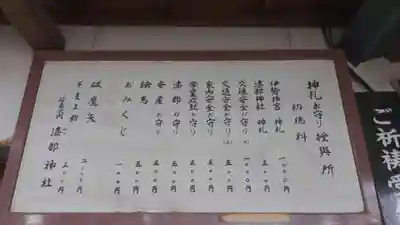 神札お守り授與所
初穂料
伊勢神宮 神札 一、〇〇〇円
漆部神社 神札 五〇〇円
交通安全お守り(大) 一〇〇〇円
交通安全お守り(小) 五〇〇円
家内安全お守り 五〇〇円
学業成就お守り 五〇〇円
漆部お守り 五〇〇円
安産お守り 五〇〇円
絵馬 五〇〇円
おみくじ 一〇〇円
破魔矢 二、〇〇〇円
漆部神社
ご祈祷受